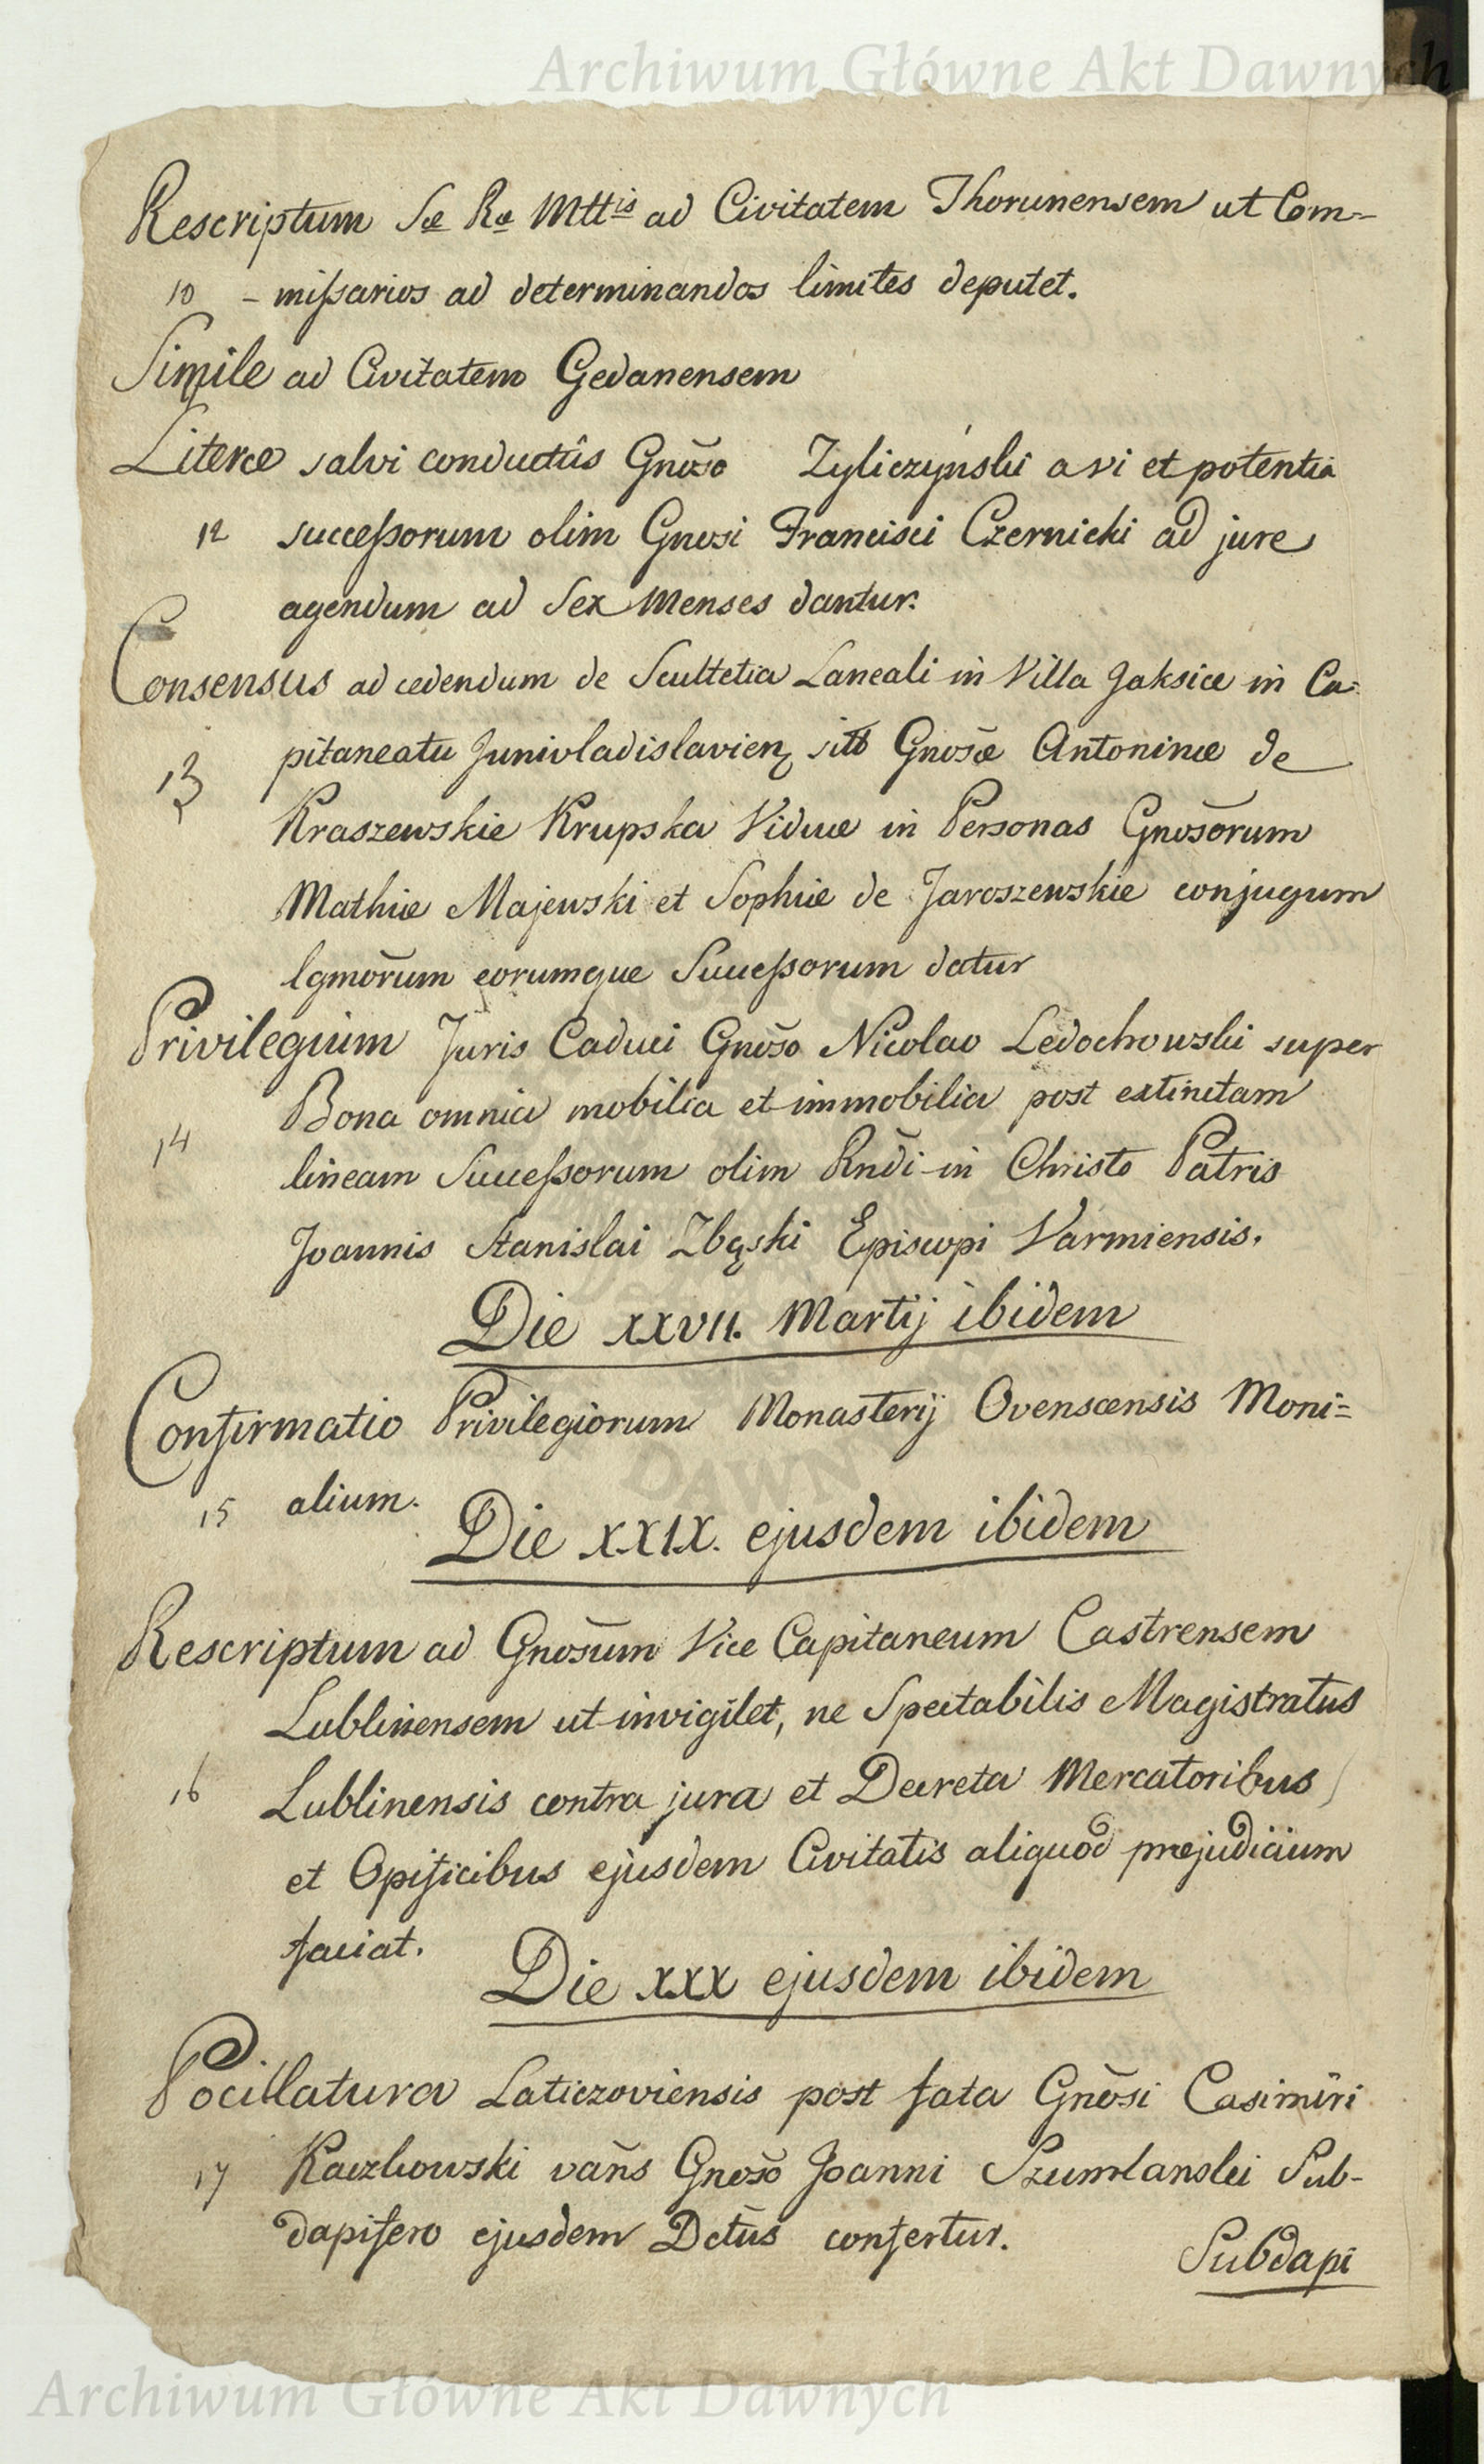 Archiwum Główne Akt Dawnych
Rescriptum Sæ Ræ Mttis ad Civitatem Thorunensem ut Com-
10 - missarios ad determinandos limites deputet.
Simile ad Civitatem Gedanensem
Literæ salvi conductûs Gnõso Zyliczyński a vi et potentia
12 successorum olim Gnosi Francisci Czernicki ad jure
agendum ad Sex Menses dantur.
Consensus ad cedendum de Scultetia Laneali in Villa Jaksice in Ca=
13 pitaneatu Junivladislavien sitt Gnosæ Antoninæ de
Kraszewskie Krupska Viduæ in Personas Gnosõrum
Mathiæ Majewski et Sophiæ de Jaroszewskie conjugum
lgmõrum eorumque Successorum datur
Privilegium Juris Caduci Gnõso Nicolao Ledochowski super
Bona omnia mobilia et immobilia post extinctam
14 lineam Successorum olim Rndi in Christo Patris
Joannis Stanislai Zbąski Episcopi Varmiensis.
Die XXVII. Martij ibidem
Confirmatio Privilegiorum Monasterij Ovenscensis Moni=
15 alium.
Die XXIX. ejusdem ibidem
Rescriptum ad Gnosum Vice Capitaneum Castrensem
Lublinensem ut invigilet, ne Spectabilis Magistratus
16 Lublinensis contra jura et Decreta Mercatoribus
et Opificibus ejusdem Civitatis aliquod præjudicium
faciat.
Die XXX ejusdem ibidem
Pocillatura Laticzoviensis post fata Gnõsi Casimiri
17 Kaczkowski vañs Gnõso Joanni Szumlanski Sub-
dapifero ejusdem Dctûs confertur.
Subdapi
Archiwum Główne Akt Dawnych